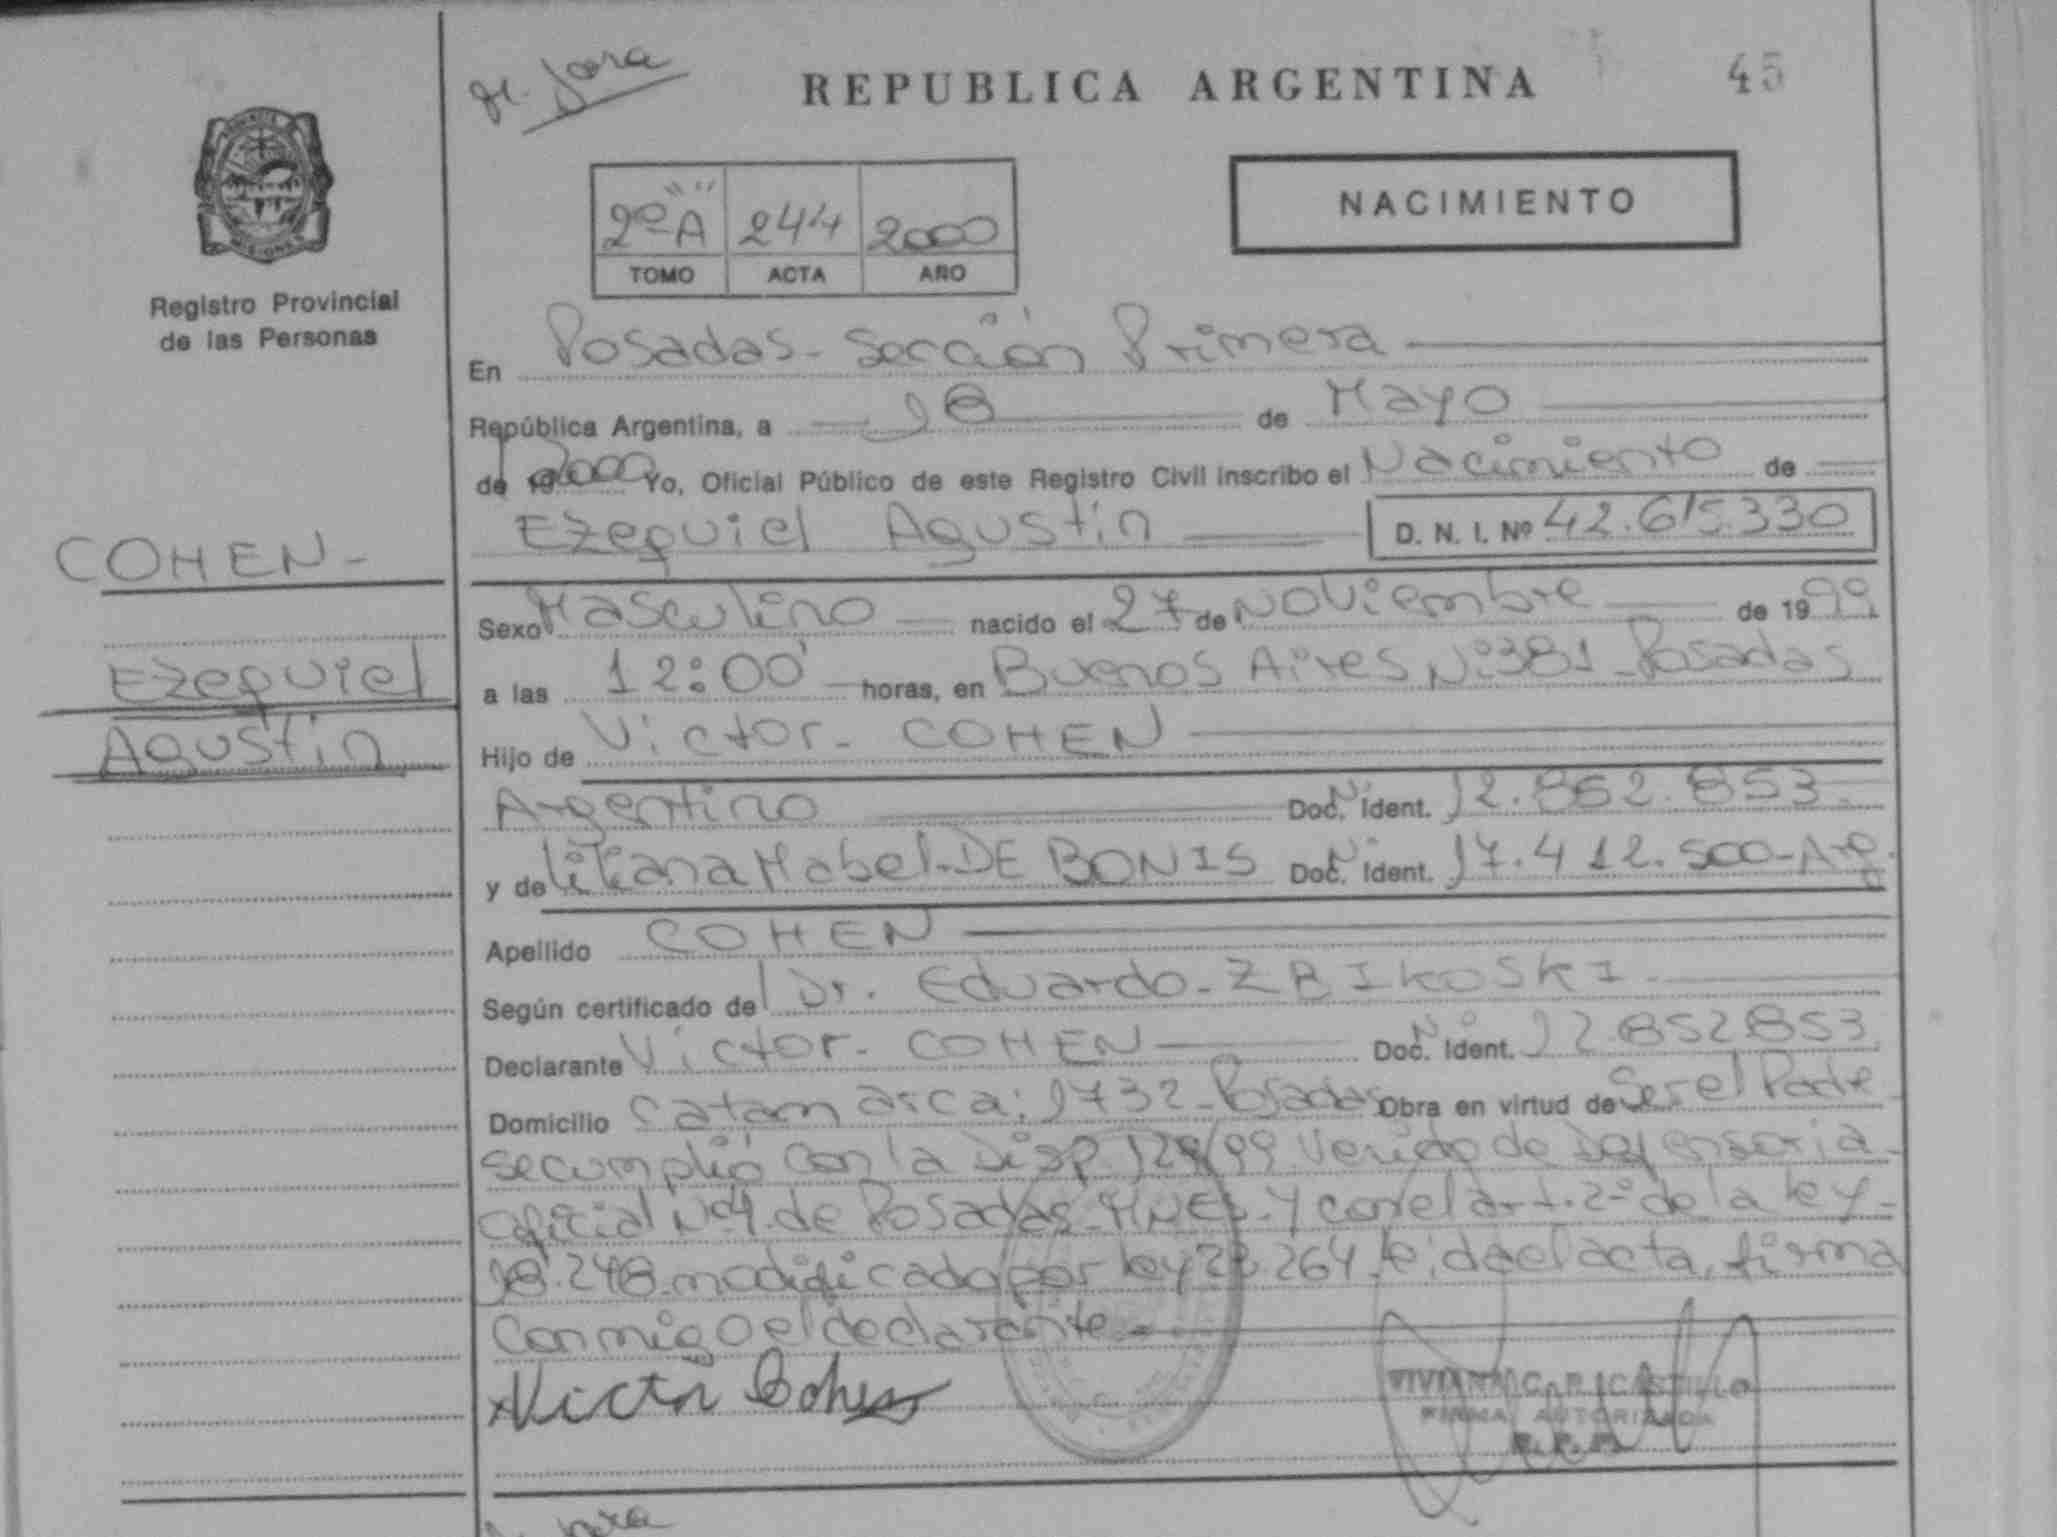 REPUBLICA ARGENTINA 45
NACIMIENTO
2º "A" 244 2000
TOMO ACTA AÑO
Registro Provincial
de las Personas
En Posadas - Sección Primera
República Argentina, a 18 de Mayo
de 2000 Yo, Oficial Público de este Registro Civil inscribo el Nacimiento de
Ezequiel Agustín D. N. I. Nº 42.615.330
COHEN -
Ezequiel
Agustín
Sexo Masculino nacido el 27 de Noviembre de 1999
a las 12:00' horas, en Buenos Aires Nº 381 - Posadas
Hijo de Victor - COHEN
Argentino Doc. Nº Ident. 12.852.853 -
y de Liliana Mabel - DE BONIS Doc. Nº Ident. 17.412.500 - Arg.
Apellido COHEN
Según certificado del Dr. Eduardo - ZBIKOSKI -
Declarante Victor - COHEN Doc. Nº Ident. 12.852.853
Domicilio Catamarca: 1732 - Posadas Obra en virtud de Ser el Padre
se cumplió con la Disp. 129/99 Venido de Defensoria -
Oficial Nº 4 de Posadas - MNES - Y con el art. 2º de la ley -
18.248 modificado por ley 23.264. Leida el acta, firma
conmigo el declarante -
Victor Cohen
VIVIANA C. P. CASTILLO
FIRMA AUTORIZADA
R. P. P.